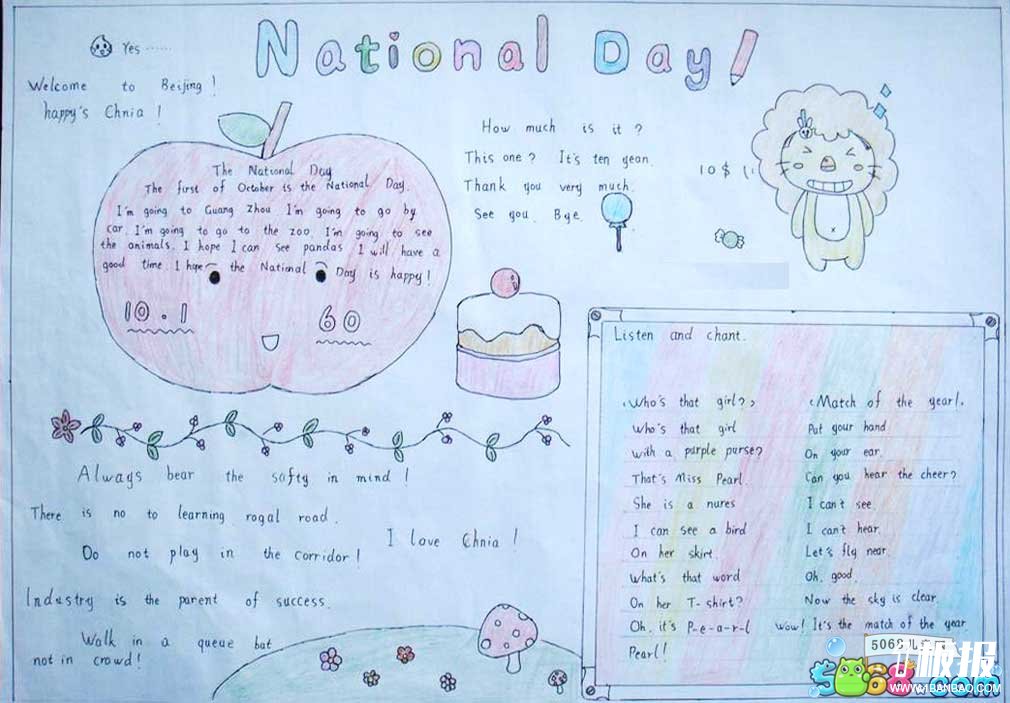 National Day!
Yes ......
Welcome to Beijing!
happy's Chnia!
The National Day
The first of October is the National Day.
I'm going to Guang Zhou I'm going to go by
car. I'm going to go to the zoo. I'm going to see
the animals. I hope I can see pandas I will have a
good time. I hope the National Day is happy!
10.1
60
How much is it?
This one? It's ten yean.
Thank you very much.
See you. Bye.
10$
Always bear the softy in mind!
There is no to learning rogal road.
Do not play in the corridor!
I love Chnia!
Industry is the parent of success.
Walk in a queue bat
not in crowd!
Listen and chant.
<Who's that girl?>
Who's that girl
with a purple purse?
That's Miss Pearl.
She is a nures
I can see a bird
On her skirt.
What's that word
On her T-shirt?
Oh, it's P-e-a-r-l
Pearl!
<Match of the year!>
Put your hand
On your ear.
Can you hear the cheer?
I can't see.
I can't hear.
Let's fly near.
Oh, good.
Now the sky is clear.
Wow! It's the match of the year
5068儿童网
5068.com
板报
WWW.1BANBAO.COM